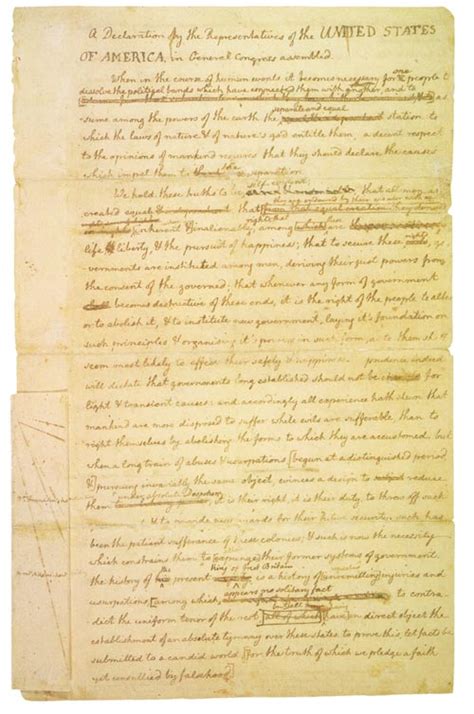 A Declaration by the Representatives of the UNITED STATES
OF AMERICA, in General Congress assembled.
When in the course of human events it becomes necessary for one people to
dissolve the political bands which have connected them with another, and to
assume among the powers of the earth the separate and equal station to
which the laws of nature & of nature's god entitle them, a decent respect
to the opinions of mankind requires that they should declare the causes
which impel them to the separation.
We hold these truths to be self-evident; that all men are
created equal
that
inherent & inalienable, among which are
life, liberty, & the pursuit of happiness; that to secure these rights, go-
vernments are instituted among men, deriving their just powers from
the consent of the governed; that whenever any form of government
becomes destructive of these ends, it is the right of the people to alter
or to abolish it, & to institute new government, laying it's foundation on
such principles & organising it's powers in such form, as to them shall
seem most likely to effect their safety & happiness. prudence indeed
will dictate that governments long established should not be changed for
light & transient causes: and accordingly all experience hath shewn that
mankind are more disposed to suffer while evils are sufferable, than to
right themselves by abolishing the forms to which they are accustomed. but
when a long train of abuses & usurpations [begun at a distinguished period
&] pursuing invariably the same object, evinces a design to reduce
them under absolute Despotism, it is their right, it is their duty, to throw off such
& to provide new guards for their future security. such has
been the patient sufferance of these colonies; & such is now the necessity
which constrains them to [expunge] their former systems of government.
the history of the present King of Great Britain is a history of [unremitting] injuries and
usurpations, [among which, appears no solitary fact to contra-
dict the uniform tenor of the rest but all have] in direct object the
establishment of an absolute tyranny over these states. to prove this, let facts be
submitted to a candid world [for the truth of which we pledge a faith
yet unsullied by falsehood]